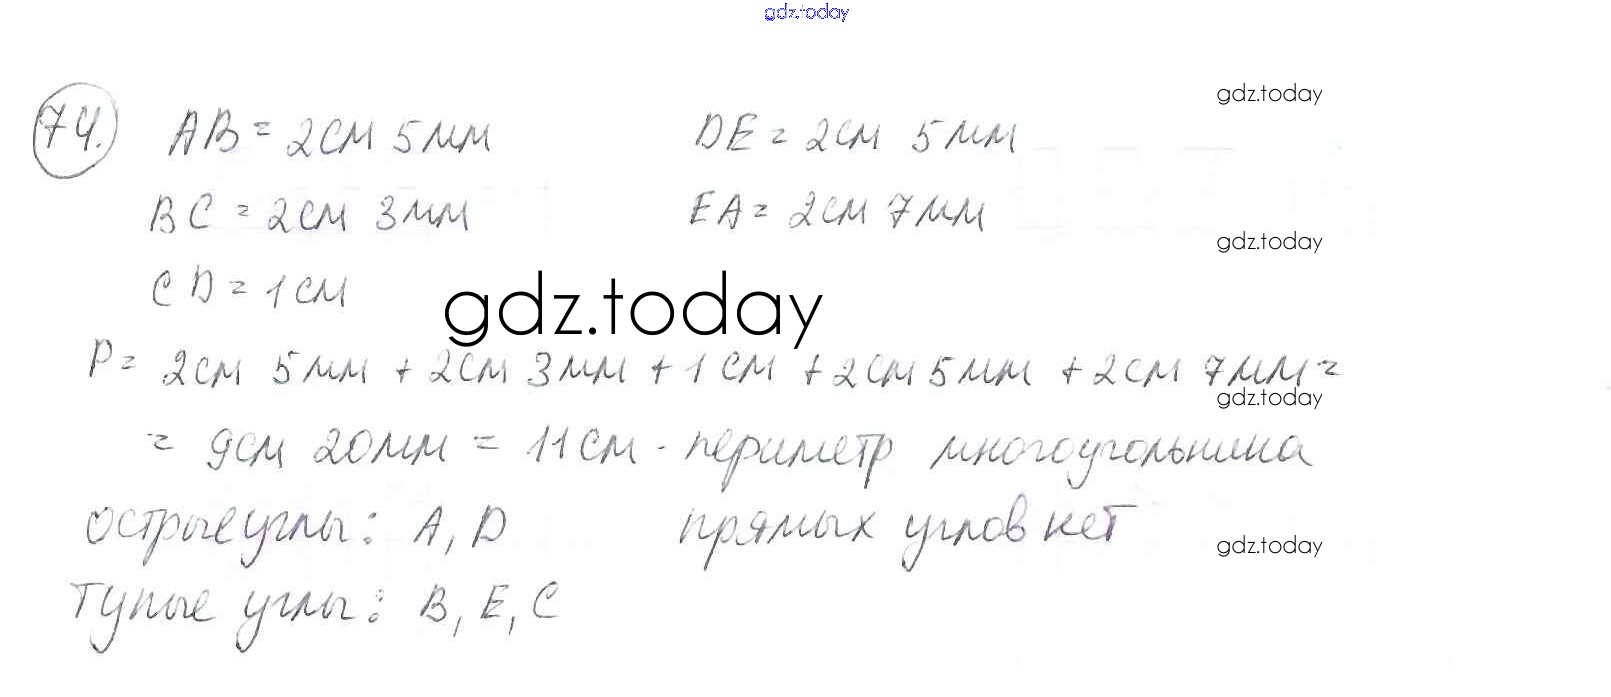 gdz.today
gdz.today
74. AB = 2см 5мм DE = 2см 5мм
BC = 2см 3мм EA = 2см 7мм
gdz.today
CD = 1см
gdz.today
P = 2см 5мм + 2см 3мм + 1см + 2см 5мм + 2см 7мм =
gdz.today
= 9см 20мм = 11см - периметр многоугольника
Острые углы: A, D прямых углов нет
gdz.today
Тупые углы: B, E, C